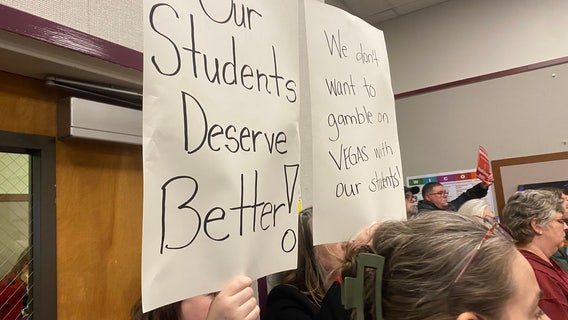 Our
Students
Deserve
Better!
We don't
want to
gamble on
VEGAS with
our students!
WICO